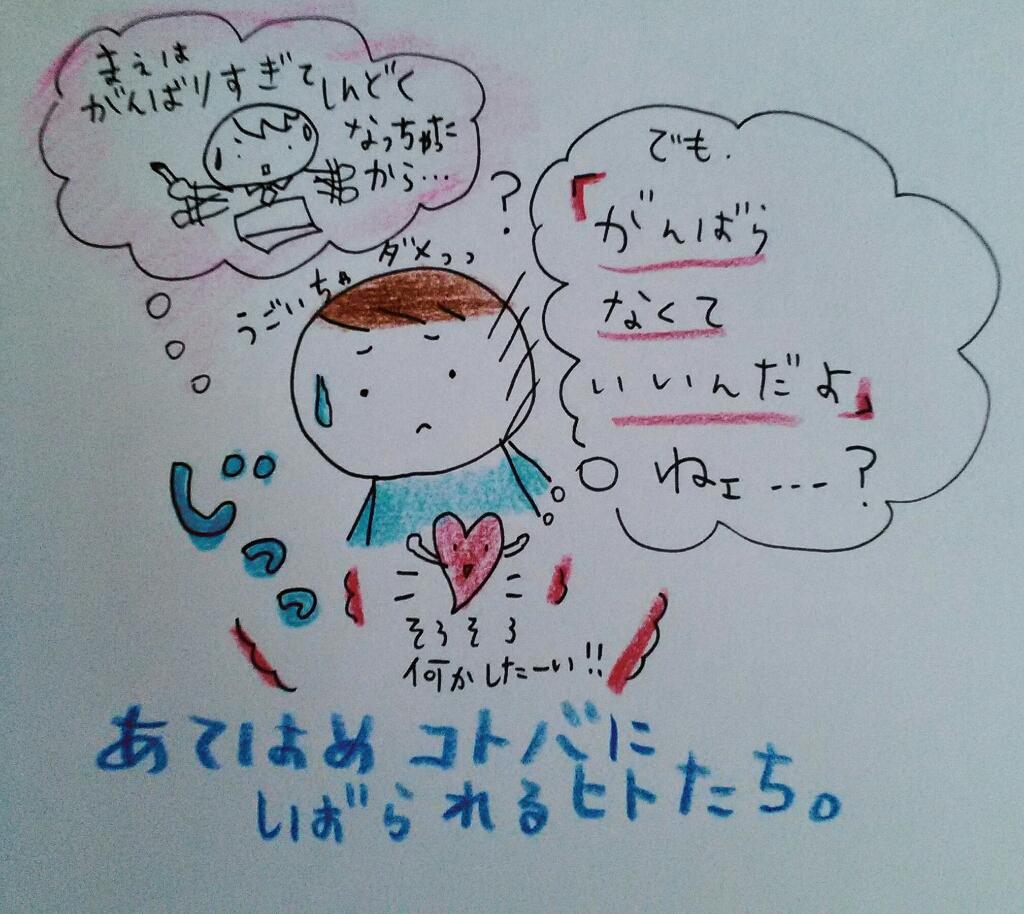 まえは
がんばりすぎて しんどく
なっちゃった
から…
?
でも.
「がんばら
なくて
いいんだよ」
ねェ…?
うごいちゃ ダメっっ
じっっ
そろそろ
何かしたーい!!
あてはめ コトバに
しばられるヒトたち。